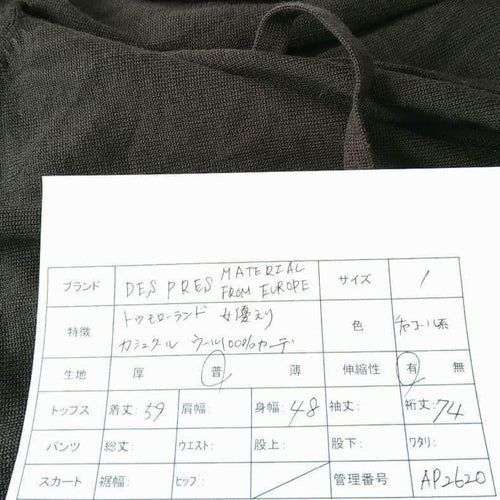 ブランド DES PRES MATERIAL FROM EUROPE サイズ 1
特徴 トゥモローランド 女優えり 色 チャコール系
カシュクール ウール100%カーデ
生地 厚 普 薄 伸縮性 有 無
トップス 着丈: 59 肩幅: 身幅: 48 袖丈: 裄丈: 74
パンツ 総丈: ウエスト: 股上: 股下: ワタリ:
スカート 裾幅: ヒップ: 管理番号 AP2620